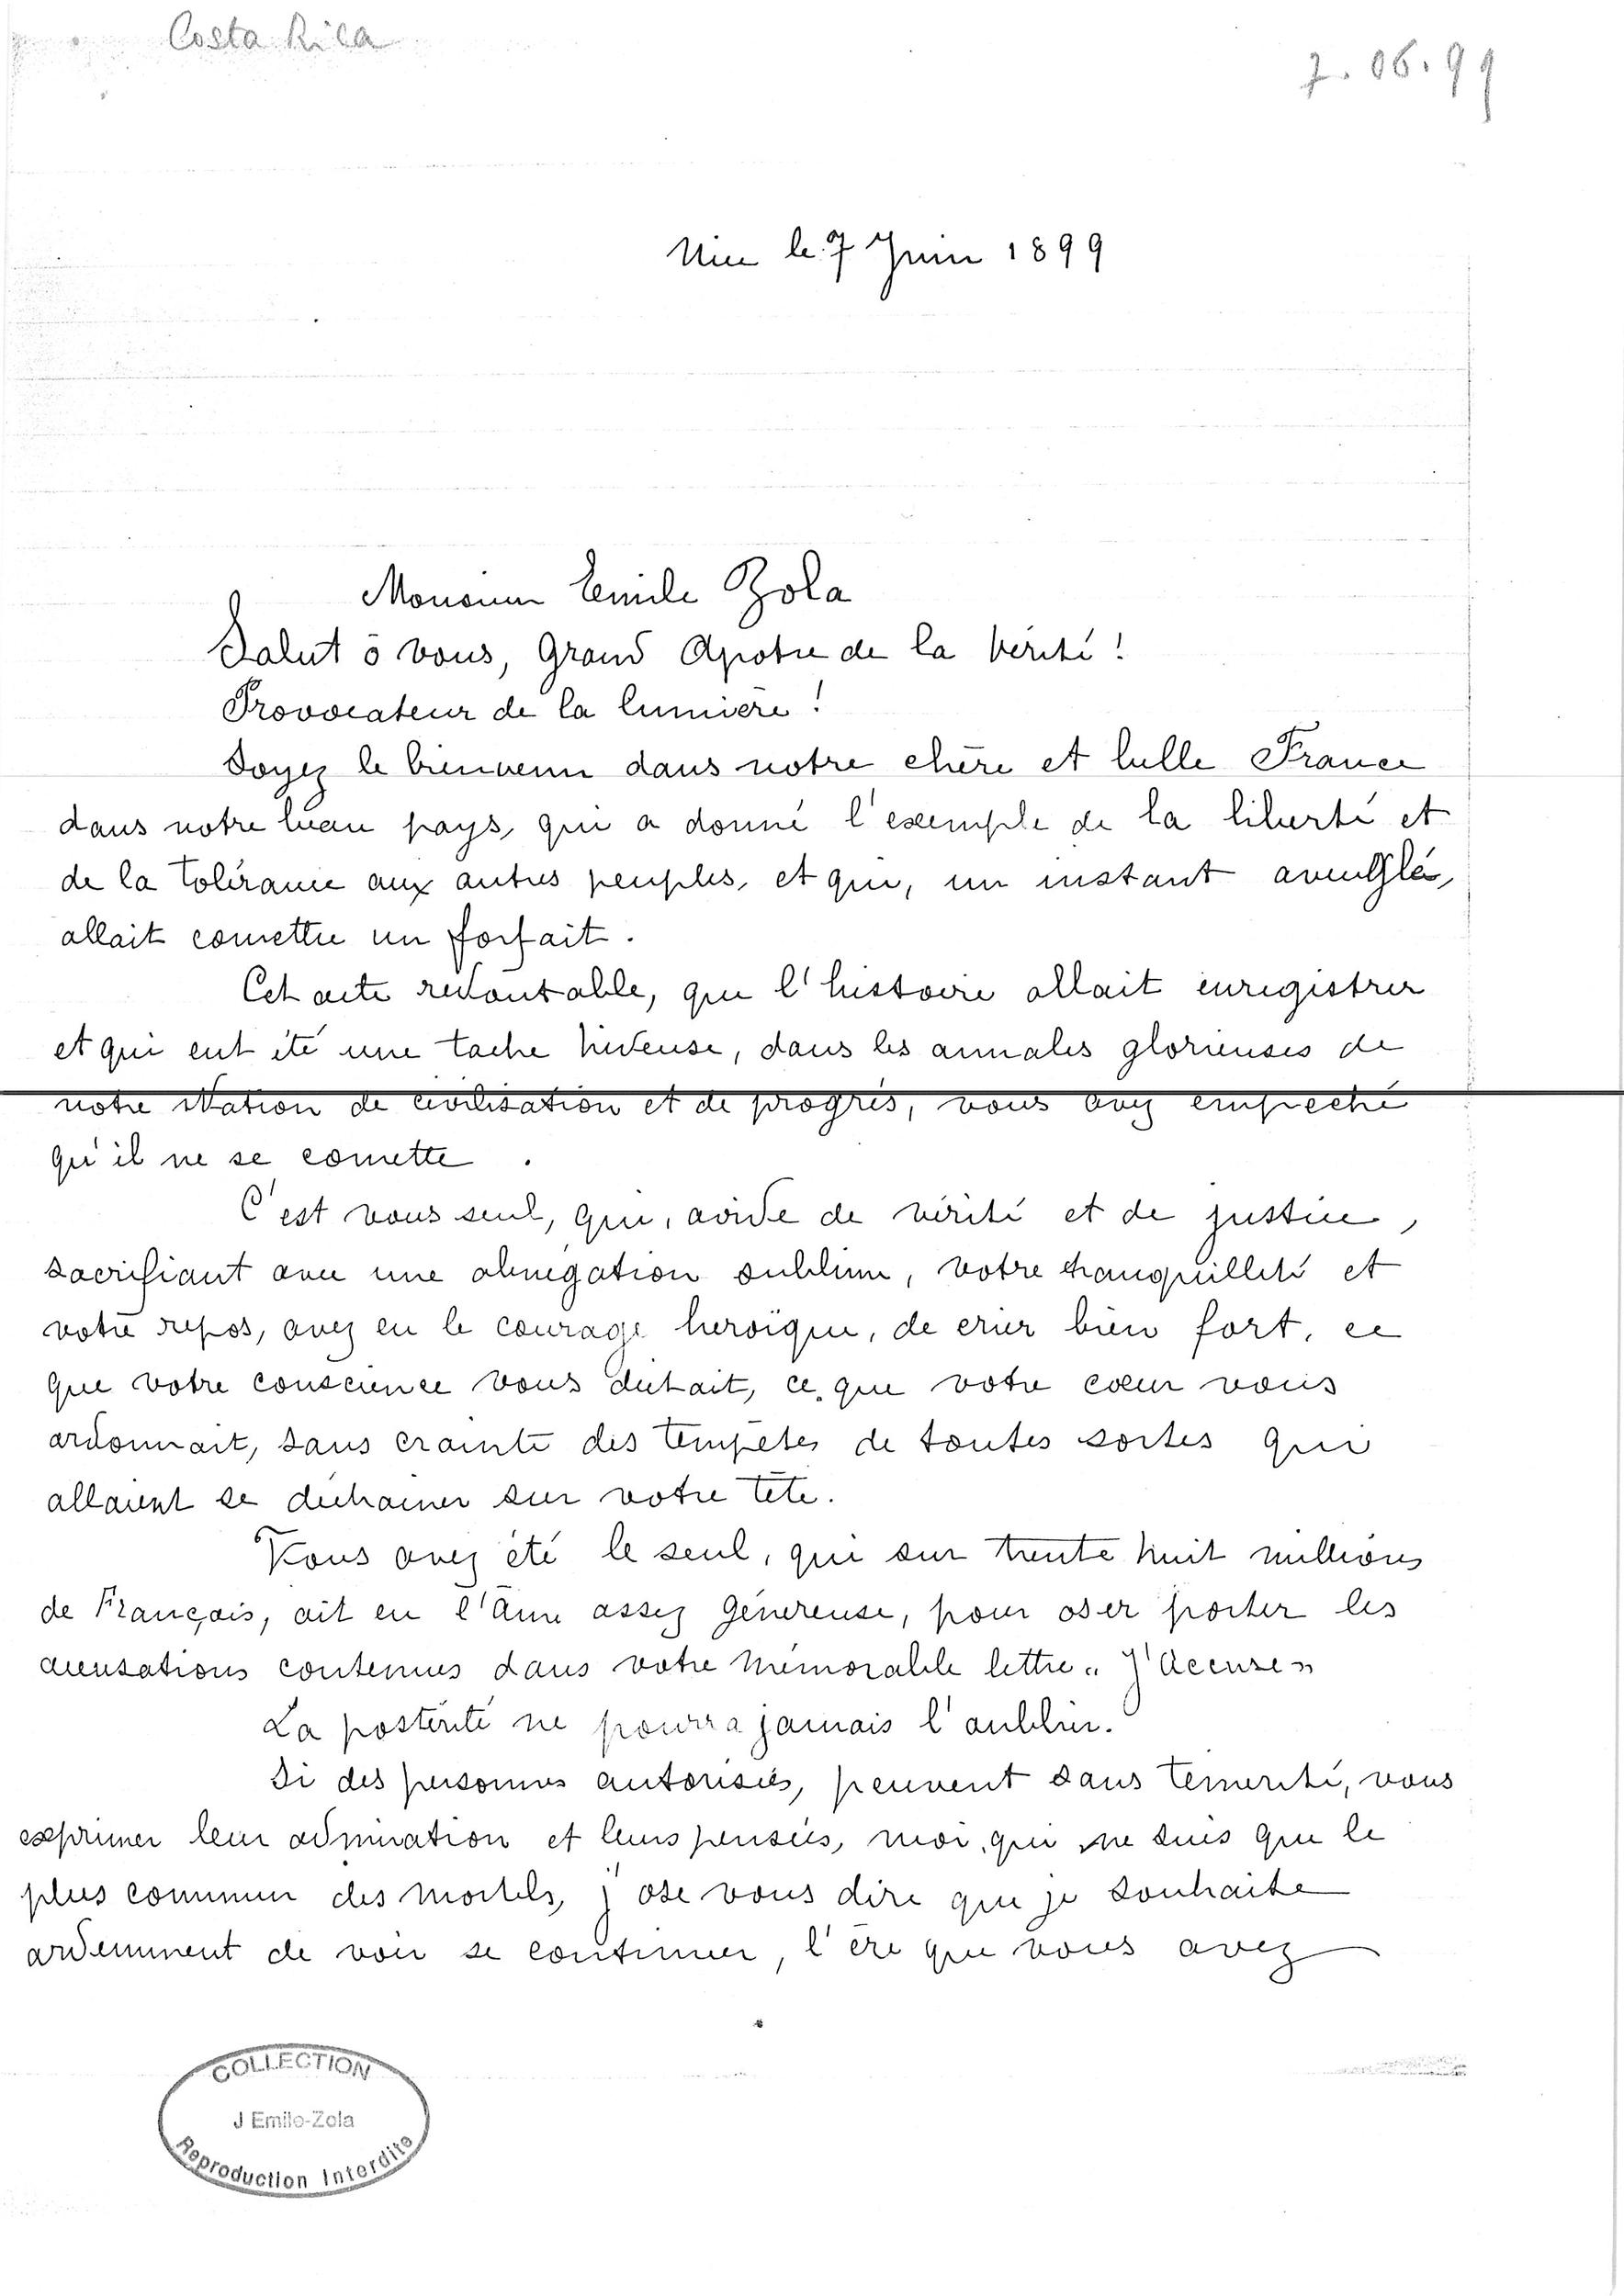 Costa Rica
7.06.99
Nice le 7 Juin 1899
Monsieur Emile Zola
Salut ô vous, Grand Apotre de la Vérité !
Provocateur de la lumière !
Soyez le bienvenu dans notre chère et belle France
dans notre beau pays, qui a donné l'exemple de la liberté et
de la Tolérance aux autres peuples, et qui, un instant aveuglée,
allait comettre un forfait.
Cet acte redoutable, que l'histoire allait enregistrer
et qui eut été une tache hideuse, dans les annales glorieuses de
notre Nation de civilisation et de progrès, vous avez empeché
qu'il ne se comette .
C'est vous seul, qui, avide de vérité et de justice,
sacrifiant avec une abnégation sublime, votre tranquillité et
votre repos, avez eu le courage heroïque, de crier bien fort, ce
que votre conscience vous dictait, ce que votre cœur vous
ordonnait, sans crainte des tempêtes de toutes sortes qui
allaient se dechainer sur votre tête.
Vous avez été le seul, qui sur trente huit millions
de Français, ait eu l'âme assez génereuse, pour oser porter les
accusations contenues dans votre mémorable lettre " J'Accuse "
La postérité ne pourra jamais l'oublier.
Si des personnes autorisées, peuvent sans témérité, vous
exprimer leur admiration et leurs pensées, moi, qui ne suis que le
plus commun des mortels, j'ose vous dire que je souhaite
ardemment de voir se continuer, l'ère que vous avez
COLLECTION
J Emile-Zola
Reproduction Interdite